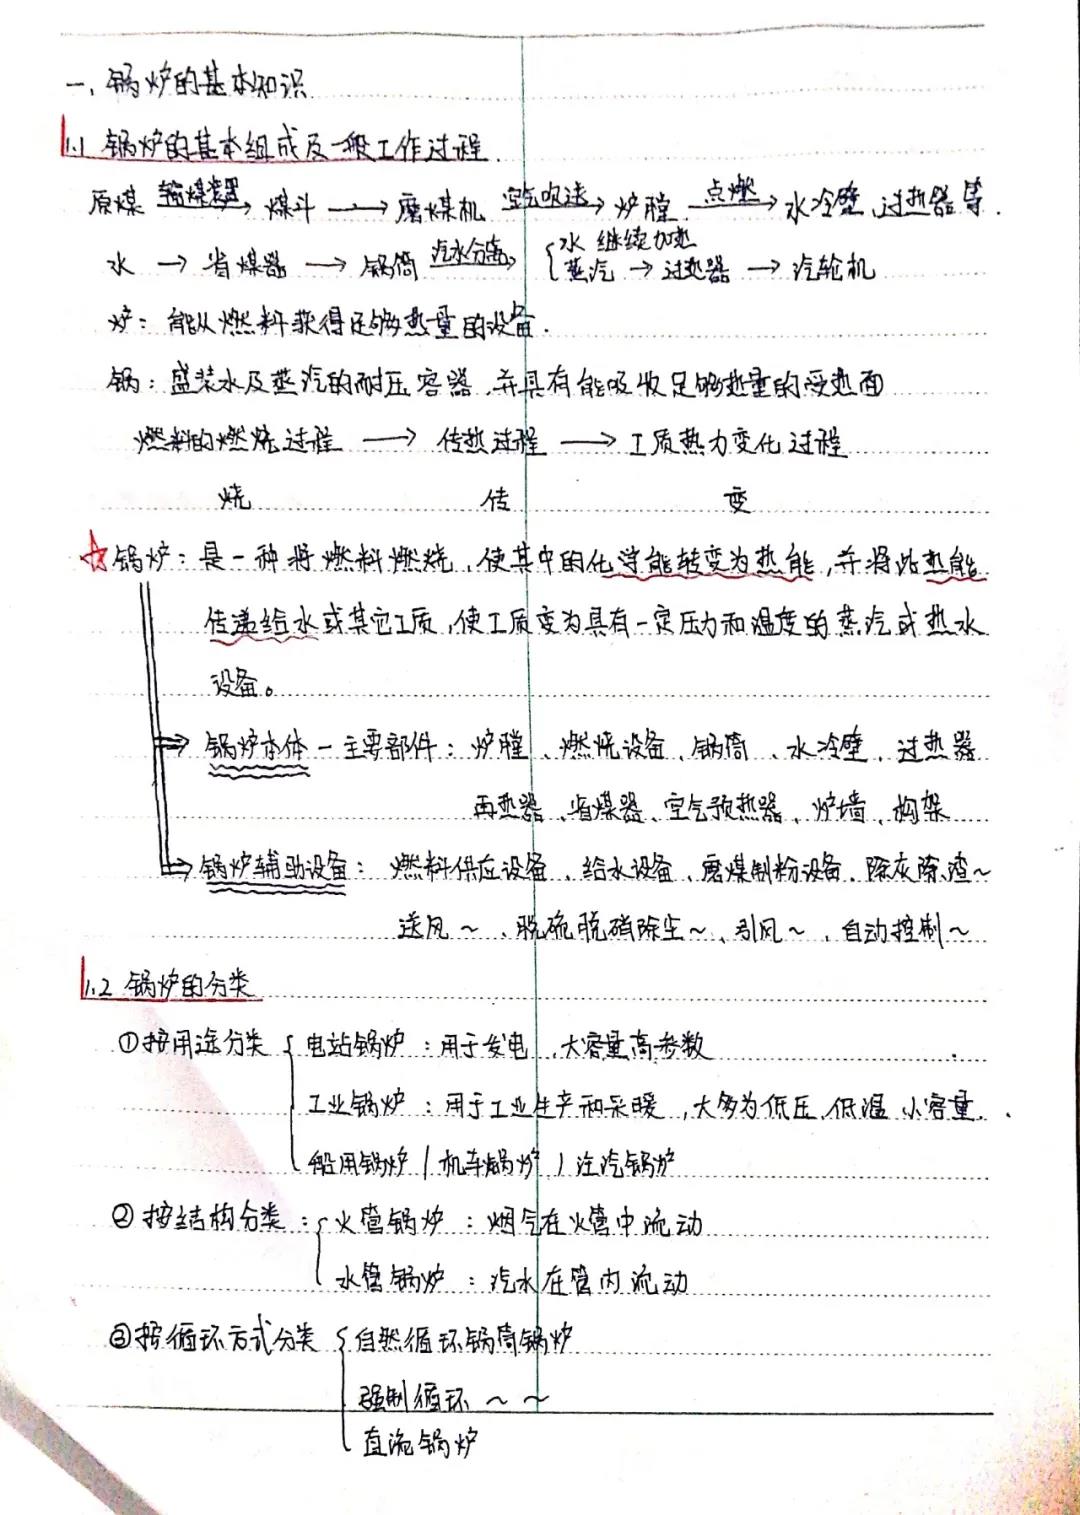 一、锅炉的基本知识
1.1 锅炉的基本组成及一般工作过程
原煤 输煤装置→ 煤斗 → 磨煤机 空气吹送→ 炉膛 点燃→ 水冷壁、过热器等.
水 → 省煤器 → 锅筒 汽水分离→ { 水 继续加热
蒸汽 → 过热器 → 汽轮机
炉：能从燃料获得足够热量的设备.
锅：盛装水及蒸汽的耐压容器，并具有能吸收足够热量的受热面
燃料的燃烧过程 → 传热过程 → 工质热力变化过程
烧 传 变
☆锅炉：是一种将燃料燃烧，使其中的化学能转变为热能，并将此热能
传递给水或其它工质，使工质变为具有一定压力和温度的蒸汽或热水
设备。
⇒ 锅炉本体 - 主要部件：炉膛、燃烧设备、锅筒、水冷壁、过热器
再热器、省煤器、空气预热器、炉墙、构架
⇒ 锅炉辅助设备：燃料供应设备、给水设备、磨煤制粉设备、除灰除渣~
送风~、脱硫脱硝除尘~、引风~、自动控制~
1.2 锅炉的分类
①按用途分类 { 电站锅炉：用于发电，大容量高参数
工业锅炉：用于工业生产和采暖，大多为低压、低温、小容量.
船用锅炉 / 机车锅炉 / 注汽锅炉
②按结构分类：{ 火管锅炉：烟气在火管中流动
水管锅炉：汽水在管内流动
③按循环方式分类 { 自然循环锅筒锅炉
强制循环 ~ ~
直流锅炉